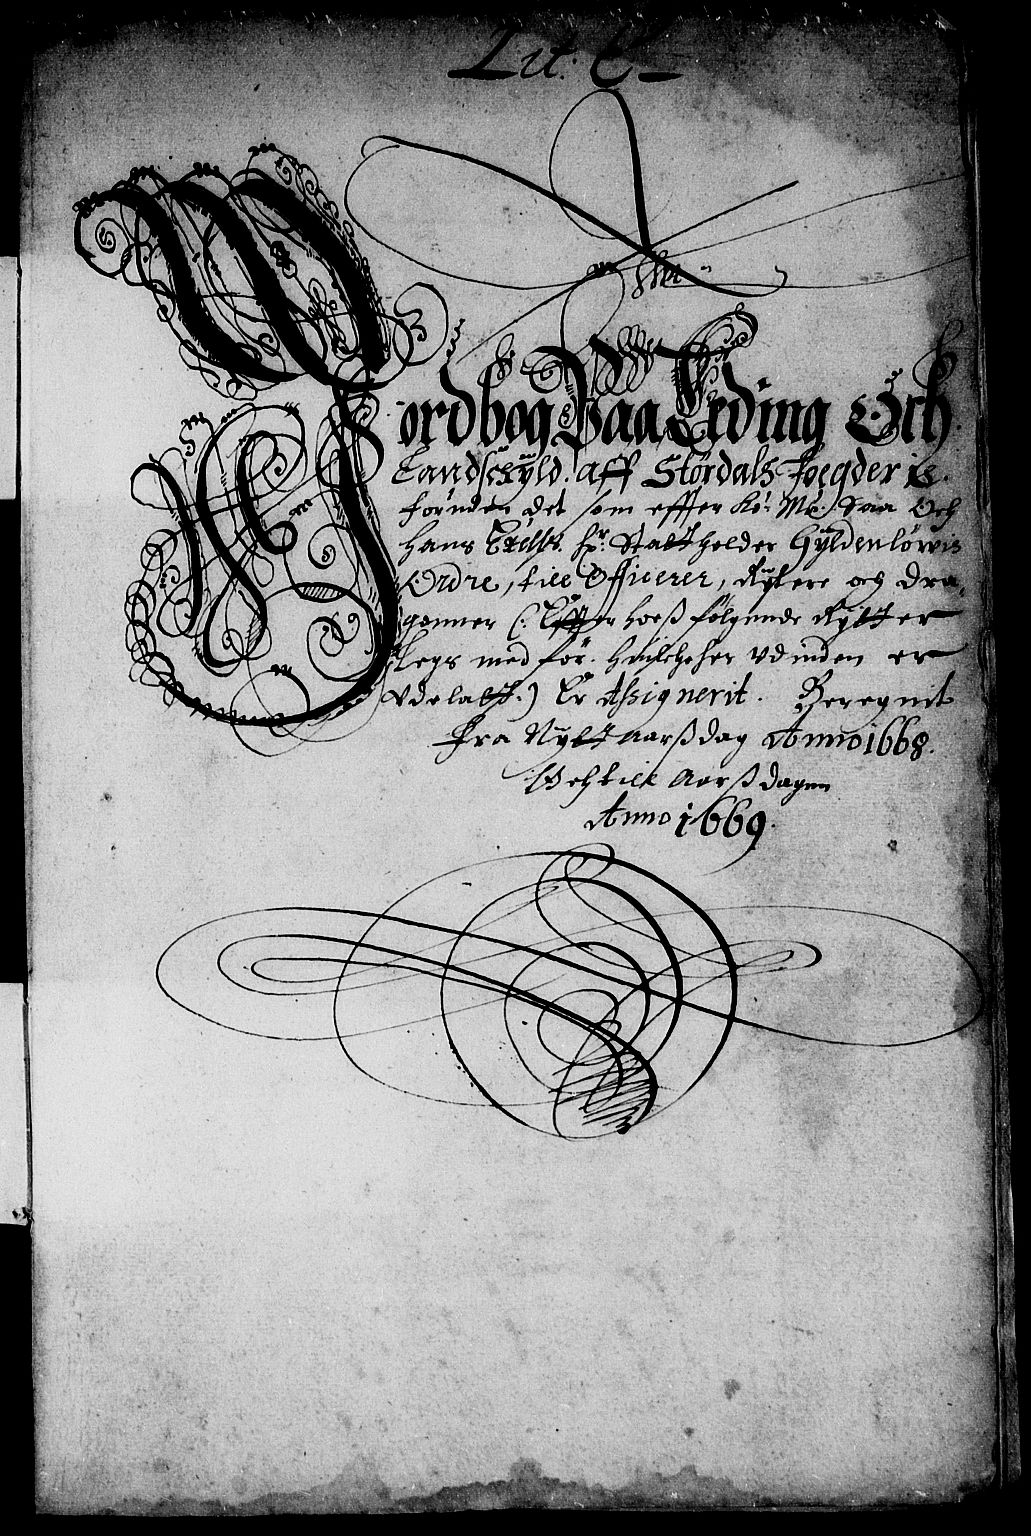 Lit: C
Jordbog Paa Leding Och
Landschyld. aff Stördals Foegderie.
foruden det som effter Ko: Mt: Saa Och
Hans Excell: Hr: Stattholder Gyldenlöwis
Ordre, till Officerer, Rytere och Dra-
goner (: Effter hoeß fölgende Rytter
legs mand for. huilchehen udinden er
Udelatt.) Er Assignerit. Beregnit
Fra Nytt Aarßdag Anno 1668.
Och till Aarßdagen
Anno 1669.